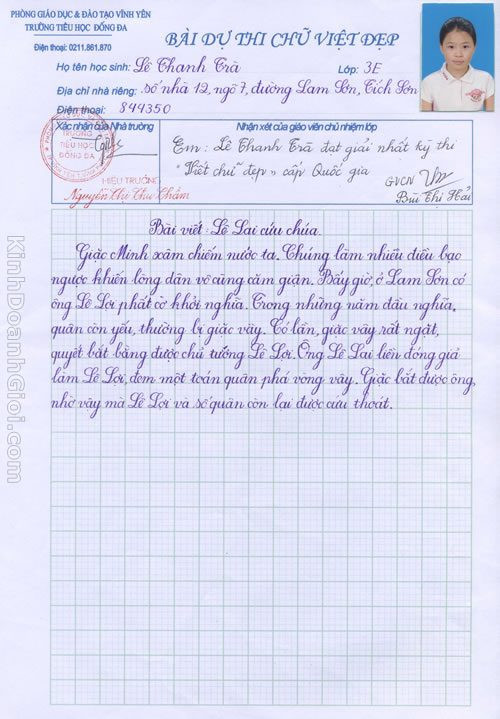 PHÒNG GIÁO DỤC & ĐÀO TẠO VĨNH YÊN
TRƯỜNG TIỂU HỌC ĐỐNG ĐA
Điện thoại: 0211.861.870
BÀI DỰ THI CHỮ VIỆT ĐẸP
Họ tên học sinh: Lê Thanh Trà Lớp: 3E
Địa chỉ nhà riêng: số nhà 12, ngõ 7, đường Lam Sơn, Tích Sơn
Điện thoại: 844350
Xác nhận của Nhà trường
Nhận xét của giáo viên chủ nhiệm lớp
TRƯỜNG
TIỂU HỌC
ĐỐNG ĐA
HIỆU TRƯỞNG
Nguyễn Thị Thu Thắm
Em: Lê Thanh Trà đạt giải nhất kỳ thi
"Viết chữ đẹp" cấp Quốc gia
GVCN
Bùi Thị Hải
Bài viết: Lê Lai cứu chúa.
Giặc Minh xâm chiếm nước ta. Chúng làm nhiều điều bạo
ngược khiến lòng dân vô cùng căm giận. Bấy giờ, ở Lam Sơn có
ông Lê Lợi phất cờ khởi nghĩa. Trong những năm đầu nghĩa
quân còn yếu, thường bị giặc vây. Có lần, giặc vây rất ngặt,
quyết bắt bằng được chủ tướng Lê Lợi. Ông Lê Lai liền đóng giả
làm Lê Lợi, đem một toán quân phá vòng vây. Giặc bắt được ông,
nhờ vậy mà Lê Lợi và số quân còn lại được cứu thoát.
KinhDoanhGioi.com